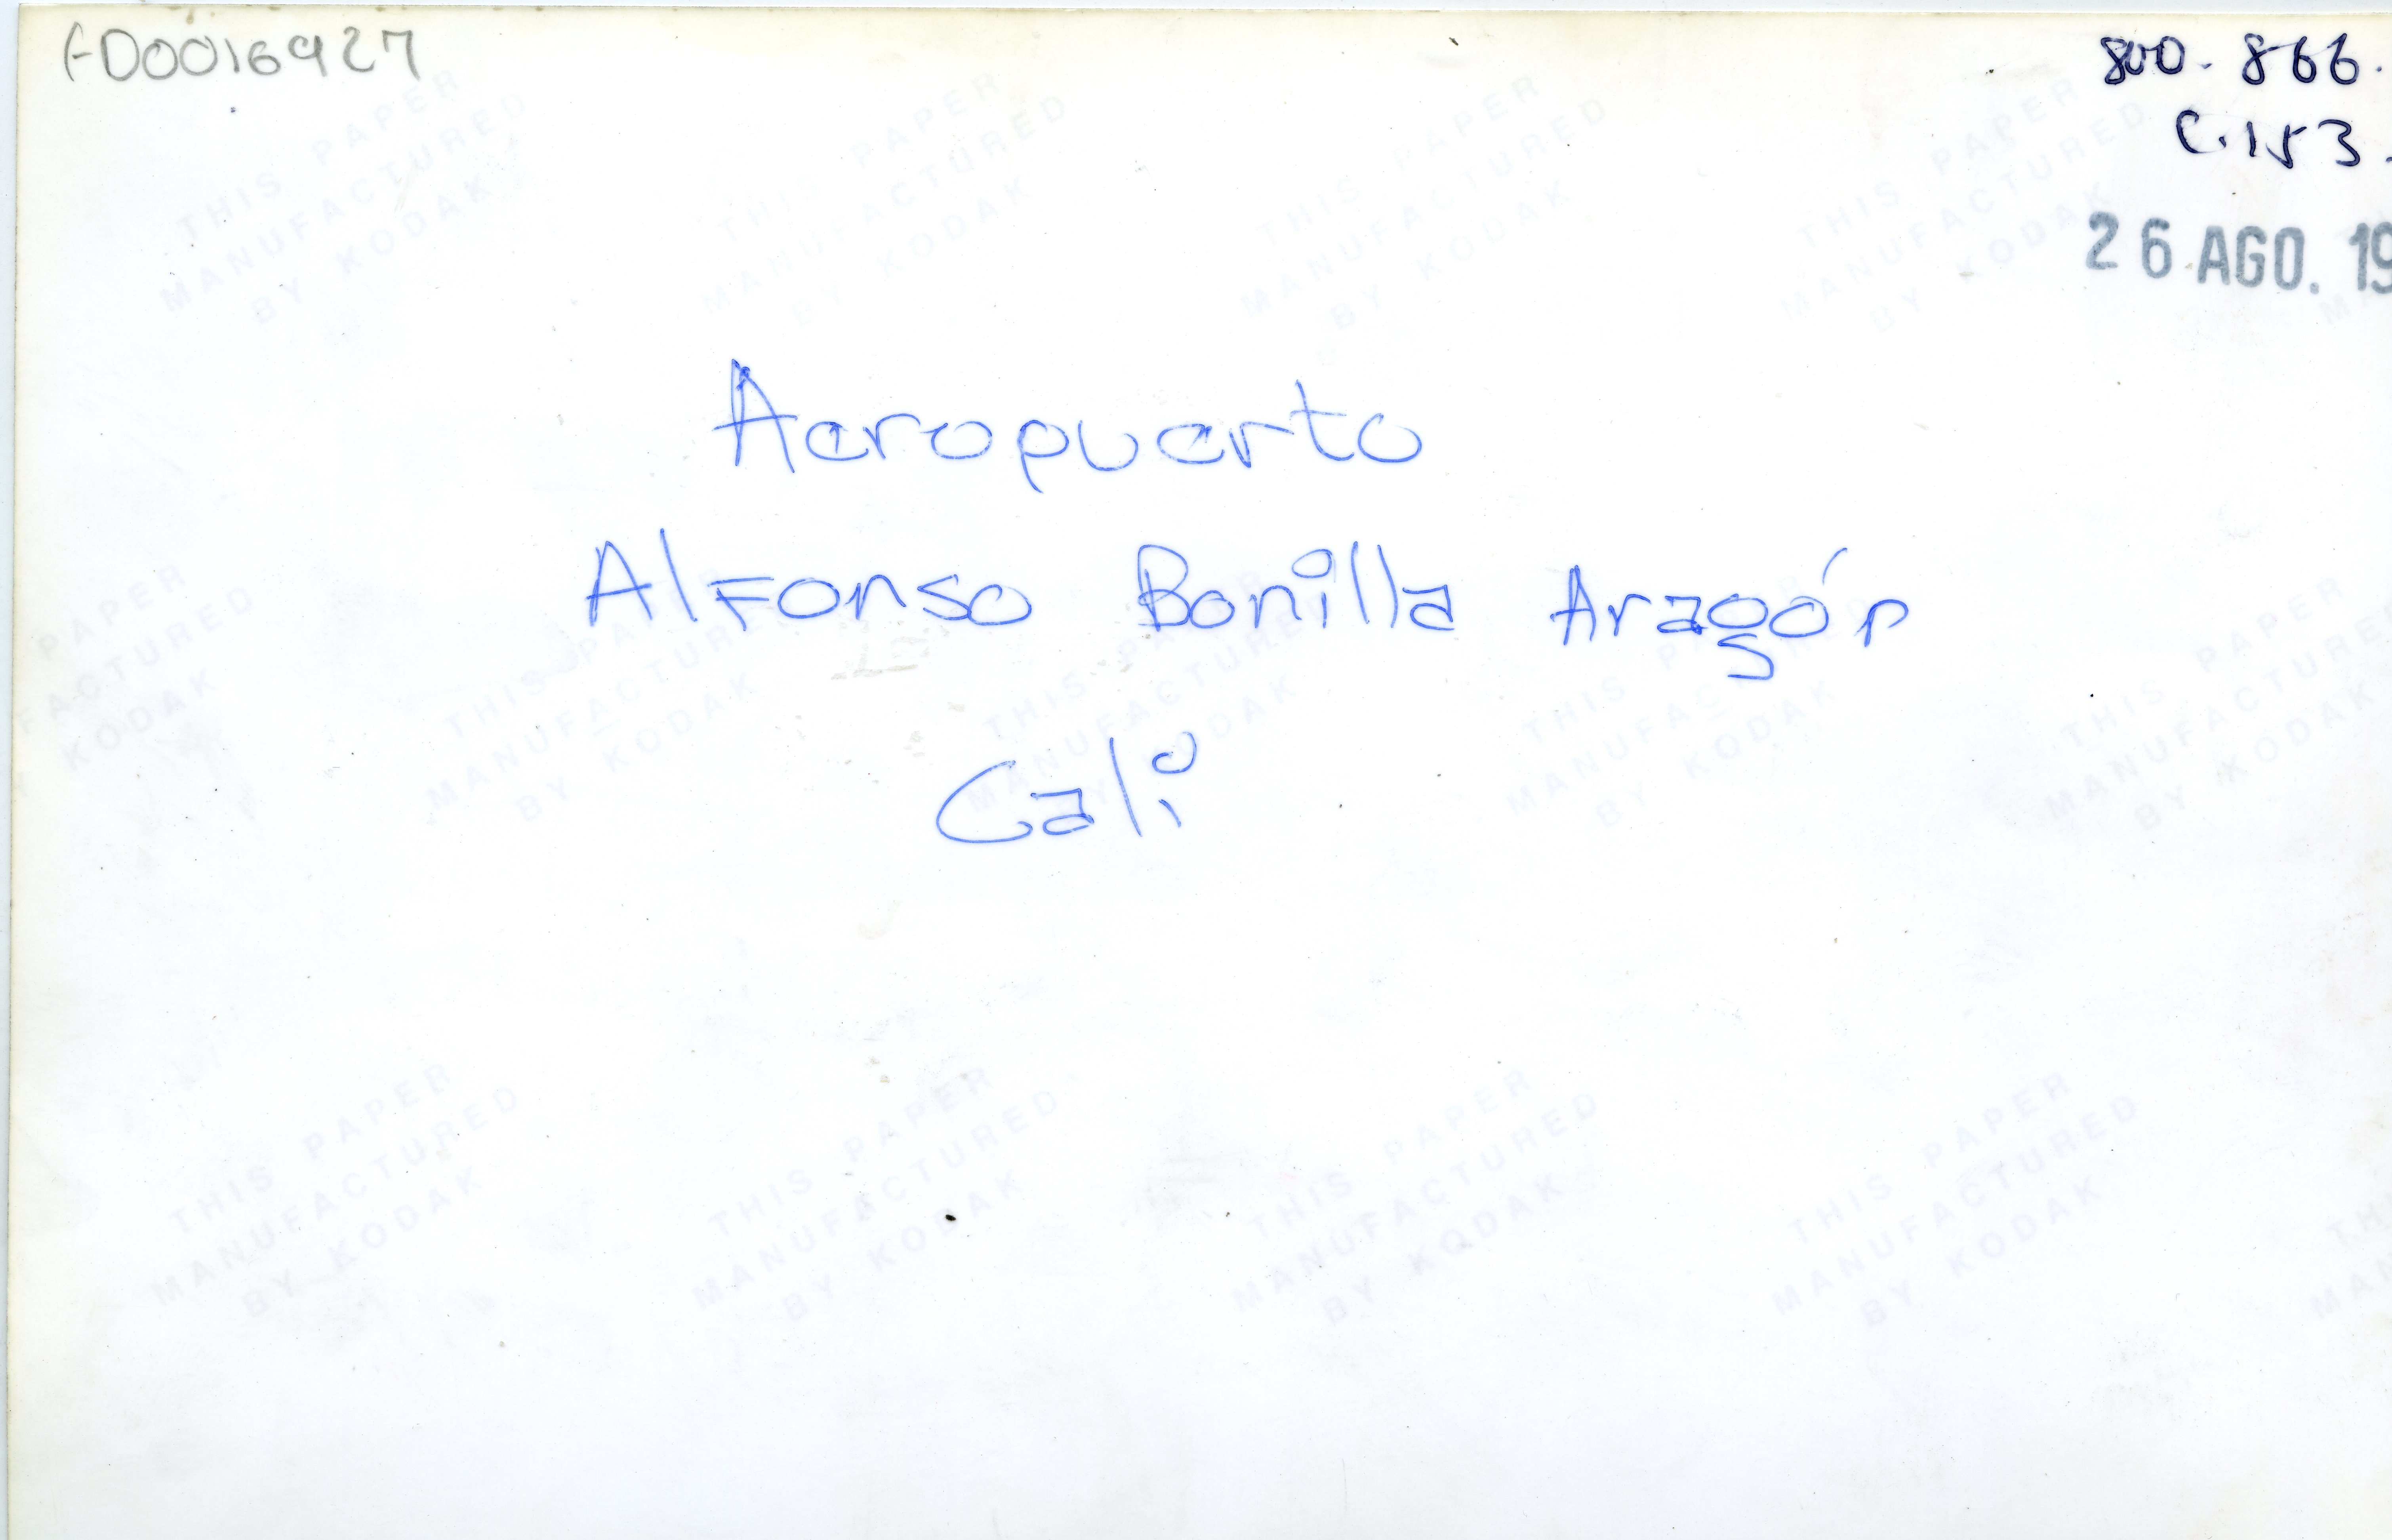 FD0016927
800-866.
C.153.
26 AGO. 19
Aeropuerto
Alfonso Bonilla Aragón
Cali
THIS PAPER
MANUFACTURED
BY KODAK